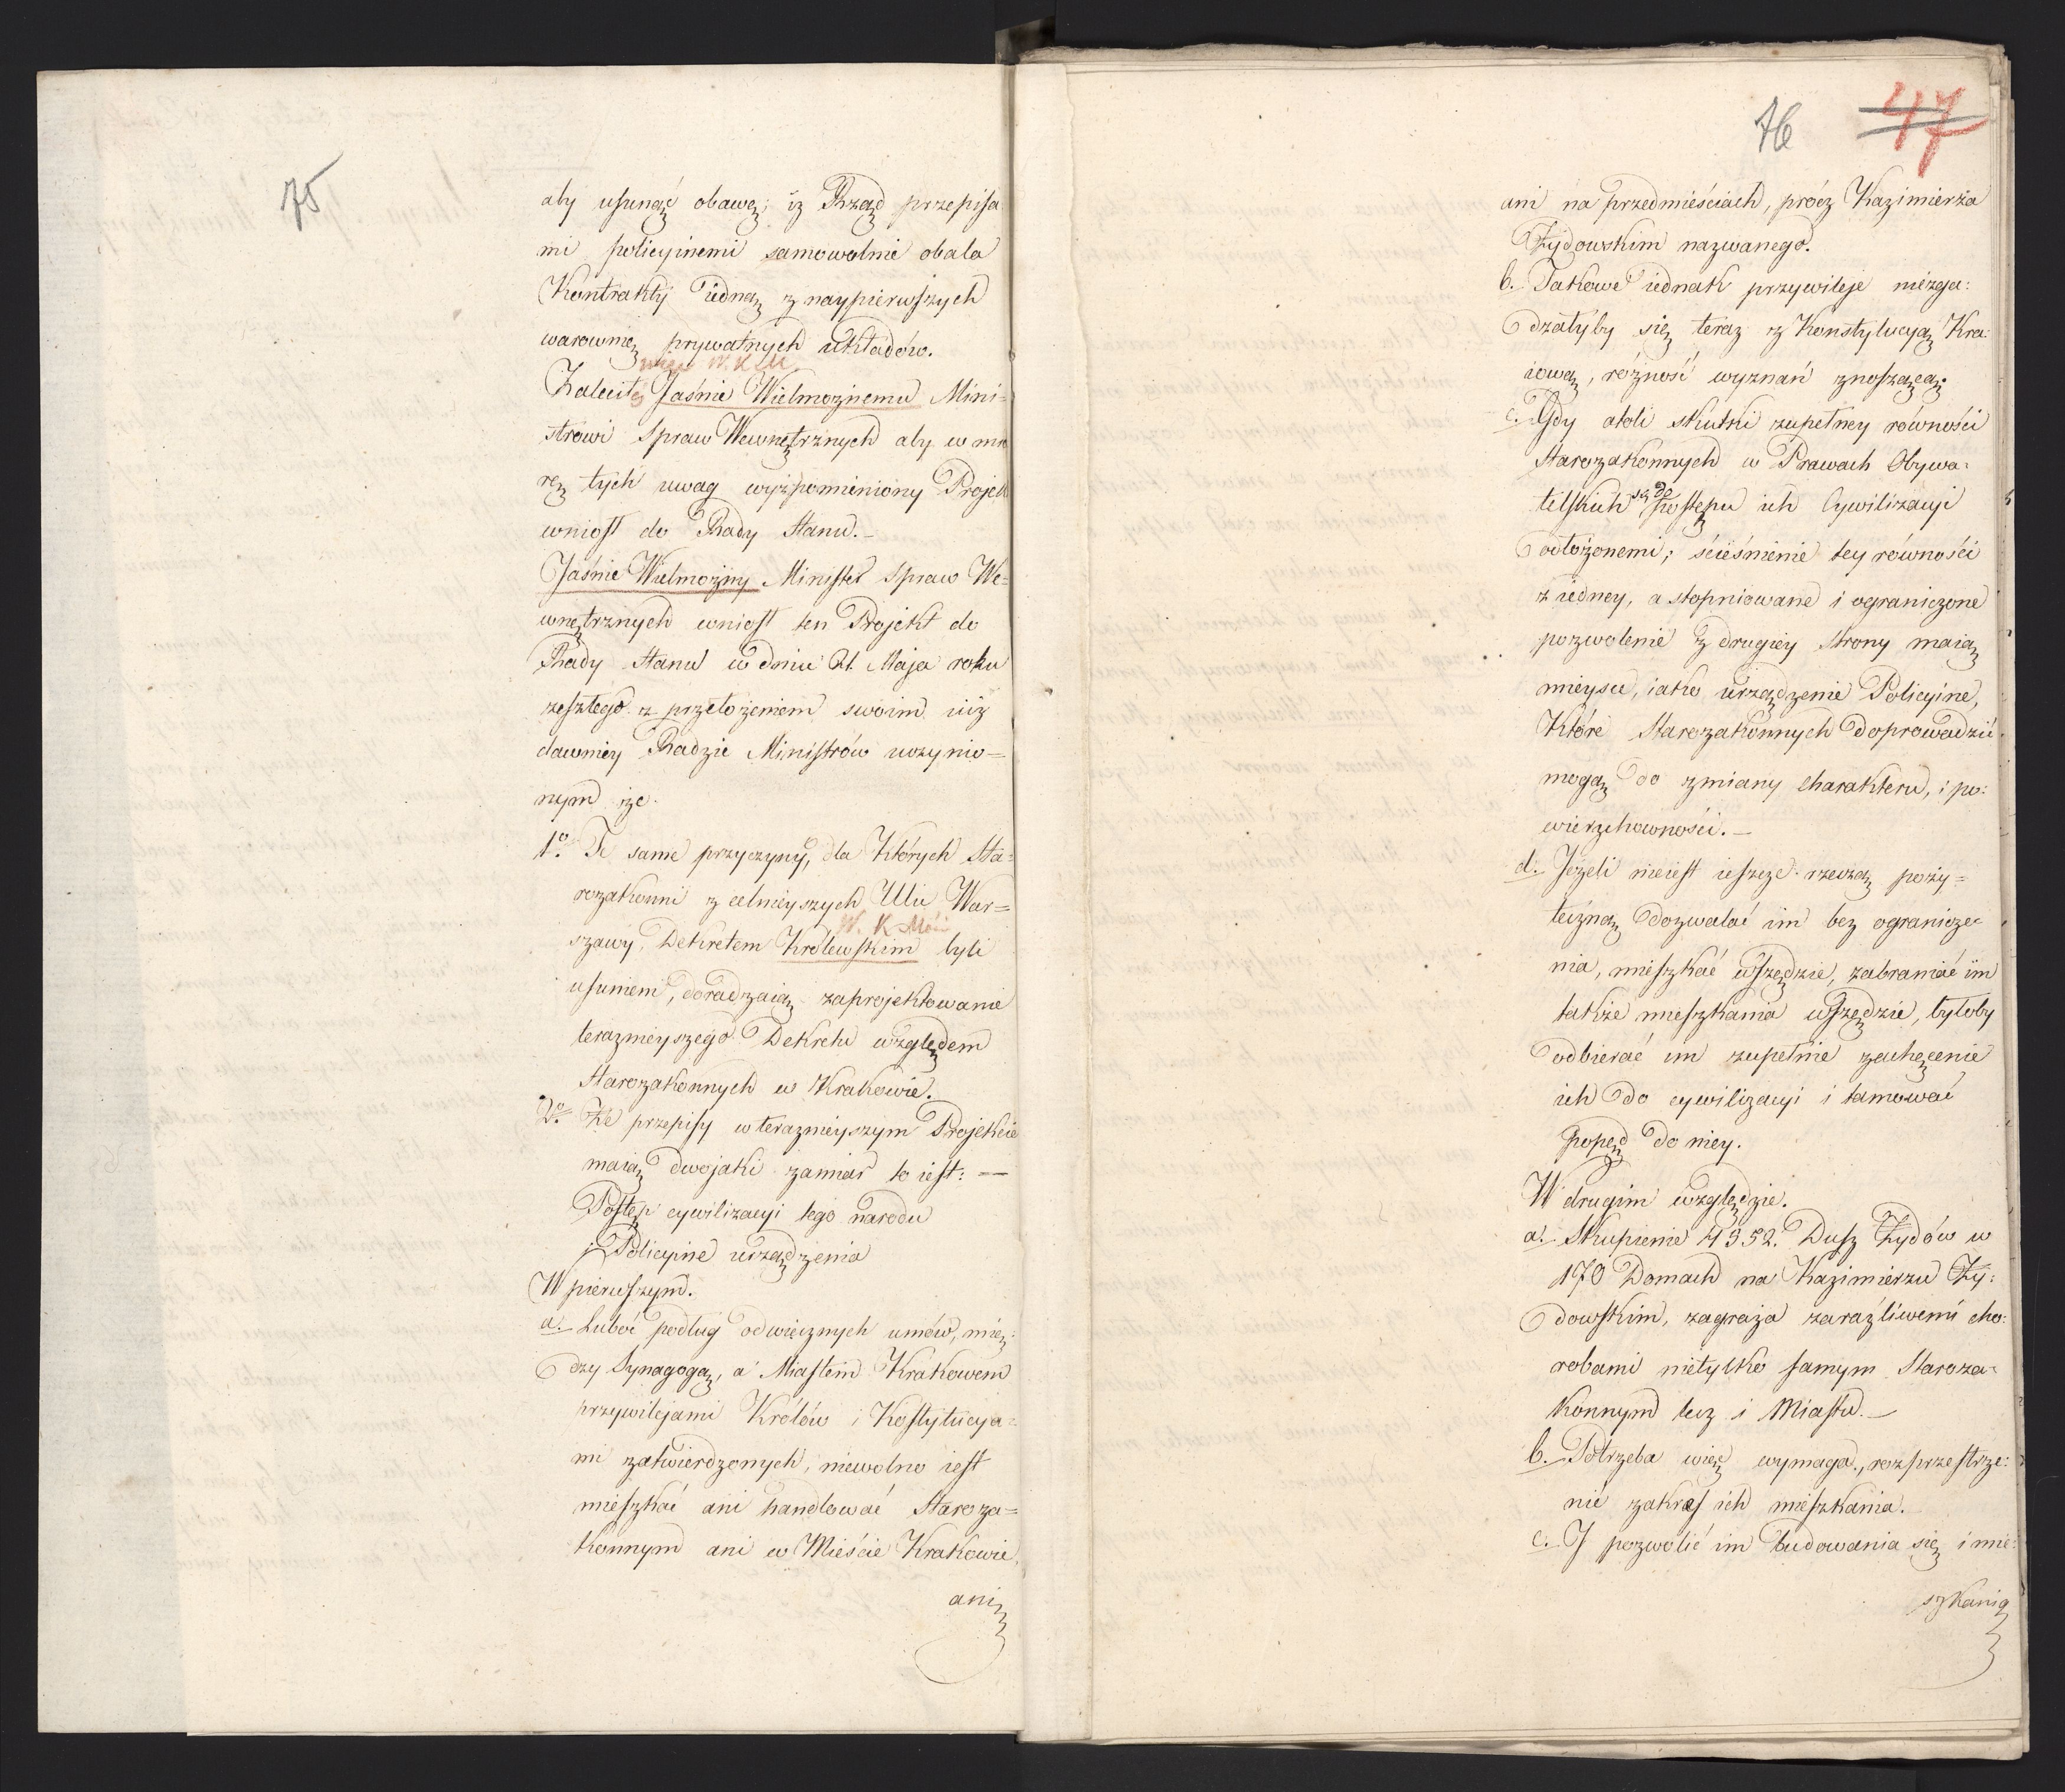 75
aby usunąć obawę; iż Rząd przepisa
mi policyinemi samowolnie obala
Kontrakty iedną z naypierwszych
warownię prywatnych układów.
W. K. M.
Zalecił Jaśnie Wielmożnemu Mini=
strowi Spraw Wewnętrznych aby w mia
rę tych uwag wyżpomieniony Projekt
wniosł do Rady Stanu.—
Jaśnie Wielmożny Minister Spraw We=
wnętrznych wniosł ten Projekt do
Rady Stanu w dniu 21. Maja roku
zeszłego z przełożeniem swoim iuż
dawniey Radzie Ministrów uczynio=
nym że.
1o. Te same przyczyny, dla Których Sta=
rozakonni z celnieyszych Ulic War=
W. K. Mci
szawy, Dekretem Królewskim byli
usunieni, doradzaią zaprojektowanie
teraznieyszego Dekretu względem
Starozakonnych w Krakowie.
2o. Że przepisy w teraznieyszym Projekcie
maią dwojaki zamiar to iest: —
Postęp cywilizacyi tego narodu
i Policyine urządzenia
W pierwszym.
a. Luboć podług odwiecznych umów, mię=
dzy Synagogą, a Miastem Krakowem
przywilejami Królów i Kostytucya=
mi zatwierdzonych, niewolno iest
mieszkać ani handlować Staroza=
Konnym ani w Mieście Krakowie,
ani
76 47
ani na przedmieściach, prócz Kazimierza
Żydowskim nazwanego.
b. Takowe iednak przywileje niezga=
dzałyby się teraz z Konstytucyą Kra=
iową, różność wyznań znoszącą.
c. Gdy atoli skutki zupełney równości
Starozakonnych w Prawach Obywa=
są do
telskich postępu ich Cywilizacyi
odłożonemi; ścieśnienie tey równości
z iedney, a stopniowane i ograniczone
pozwolenie z drugiey strony maią
mieysce, iako urządzenie Policyine,
Które Starozakonnych doprowadzić
mogą do zmiany charakteru, i po=
wierzchowności.—
d. Jeżeli nieiest ieszcze rzeczą poży=
teczną dozwalać im bez ogranicze=
nia, mieszkać wszędzie, zabraniać im
także mieszkania wszędzie, byłoby
odbierać im zupełnie zachęcenie
ich do cywilizacyi i tamować
popęd do niey.
W drugim względzie.
a. Skupienie 4352. Dusz Żydów w
170 Domach na Kazimierzu Ży=
dowskim, zagraża zaraźliwemi cho=
robami nietylko samym Staroza=
Konnym lecz i Miastu.—
b. Potrzeba więc wymaga, rozprzestrze=
nić zakres ich mieszkania.
c. I pozwolić im budowania się i mie=
szkania